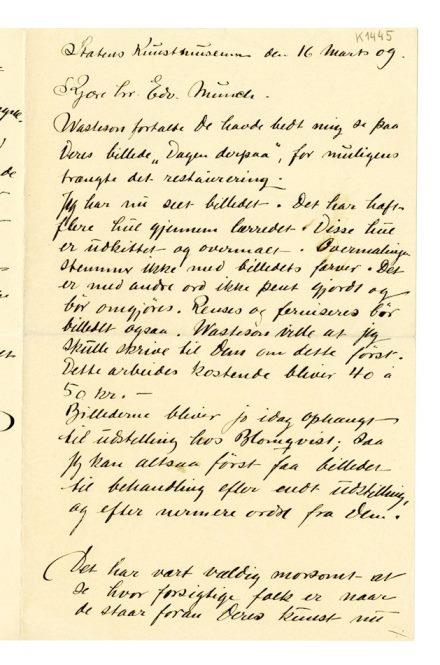 K1445
Statens Kunstmuseum den 16 Marts 09.
Kjære hr. Edv. Munch.
Wasteson fortalte De havde bedt mig se paa
Deres billede „Dagen derpaa", for muligens
trængte det restaurering.
Jeg har nu seet billedet. Det har haft
flere hul gjennem lærredet. Disse hul
er udkittet og overmalt. Overmalingen
stemmer ikke med billedets farver. Det
er med andre ord ikke pent gjordt og
bør omgjøres. Renses og ferniseres bør
billedet ogsaa. Wasteson vilde at jeg
skulle skrive til Dem om dette først.
Dette arbeides kostende bliver 40 à
50 kr. —
Billederne bliver jo idag ophængt
til udstilling hos Blomqvist; saa
jeg kan altsaa först faa billedet
til behandling efter endt udstilling,
og efter nermere ordre fra Dem.
Det har vært veldig morsomt at
se hvor forsigtige folk er naar
de staar foran Deres kunst nu